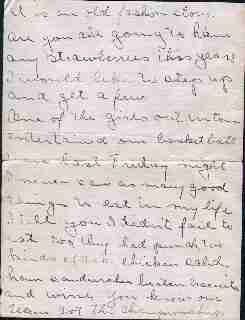 It is an old fashion story.
Are you all going to have
any strawberries this year
I would like to stop up
and get a few
One of the girls out in town
entertained our basket ball
last Friday night
I never saw so many good
things to eat in my life
I tell you I didn't fail to
eat too they had punch two
kinds of cake chicken salad
ham sandwiches beaten biscuits
and you know our
team got the championship